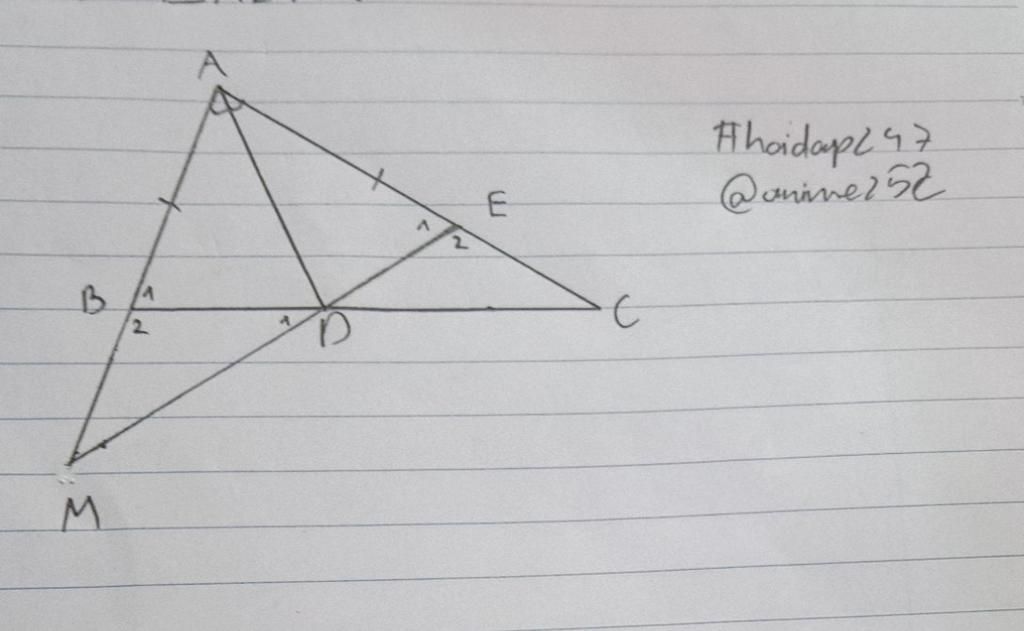 A
#hoidap247
@anime252
E
1
2
B
1
2
1
D
C
M